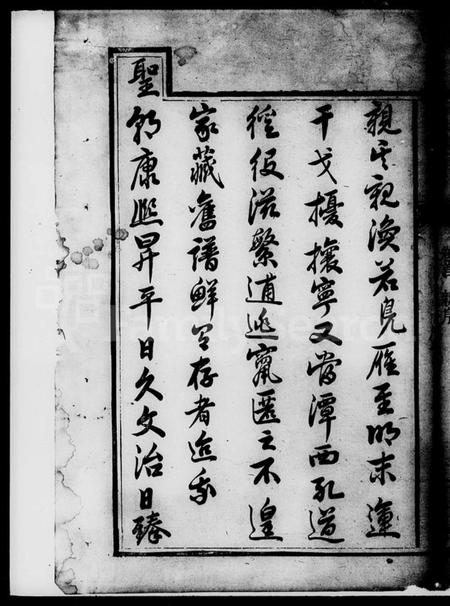 親其親渙若鳧雁至明末運
干戈擾攘寧又當潭西孔道
徭役滋繁逋逃竄匿之不遑
家藏舊譜鮮有存者迨我
聖朝康熙昇平日久文治日臻
FamilySearch